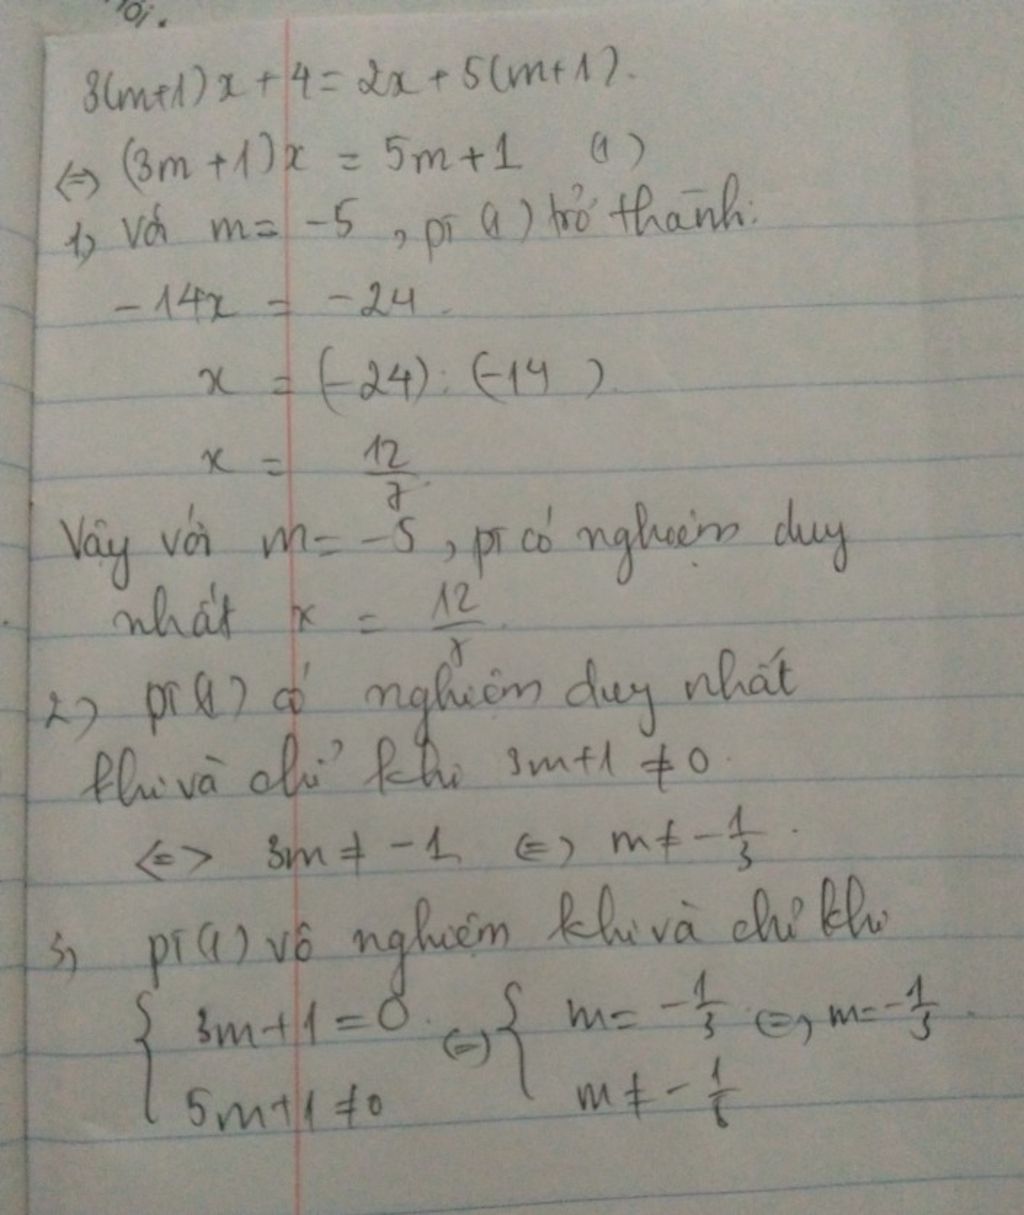 3(m+1)x + 4 = 2x + 5(m+1).
⇔ (3m+1)x = 5m+1 (1)
1) Với m = -5, pt (1) trở thành:
-14x = -24.
x = (-24) : (-14).
x = 12/7
Vậy với m = -5, pt có nghiệm duy
nhất x = 12/7.
2) pt (1) có nghiệm duy nhất
khi và chỉ khi 3m+1 ≠ 0.
⇔ 3m ≠ -1 ⇔ m ≠ -1/3.
3) pt (1) vô nghiệm khi và chỉ khi
{ 3m+1 = 0 ⇔ { m = -1/3 ⇔ m = -1/3.
5m+1 ≠ 0 m ≠ -1/5